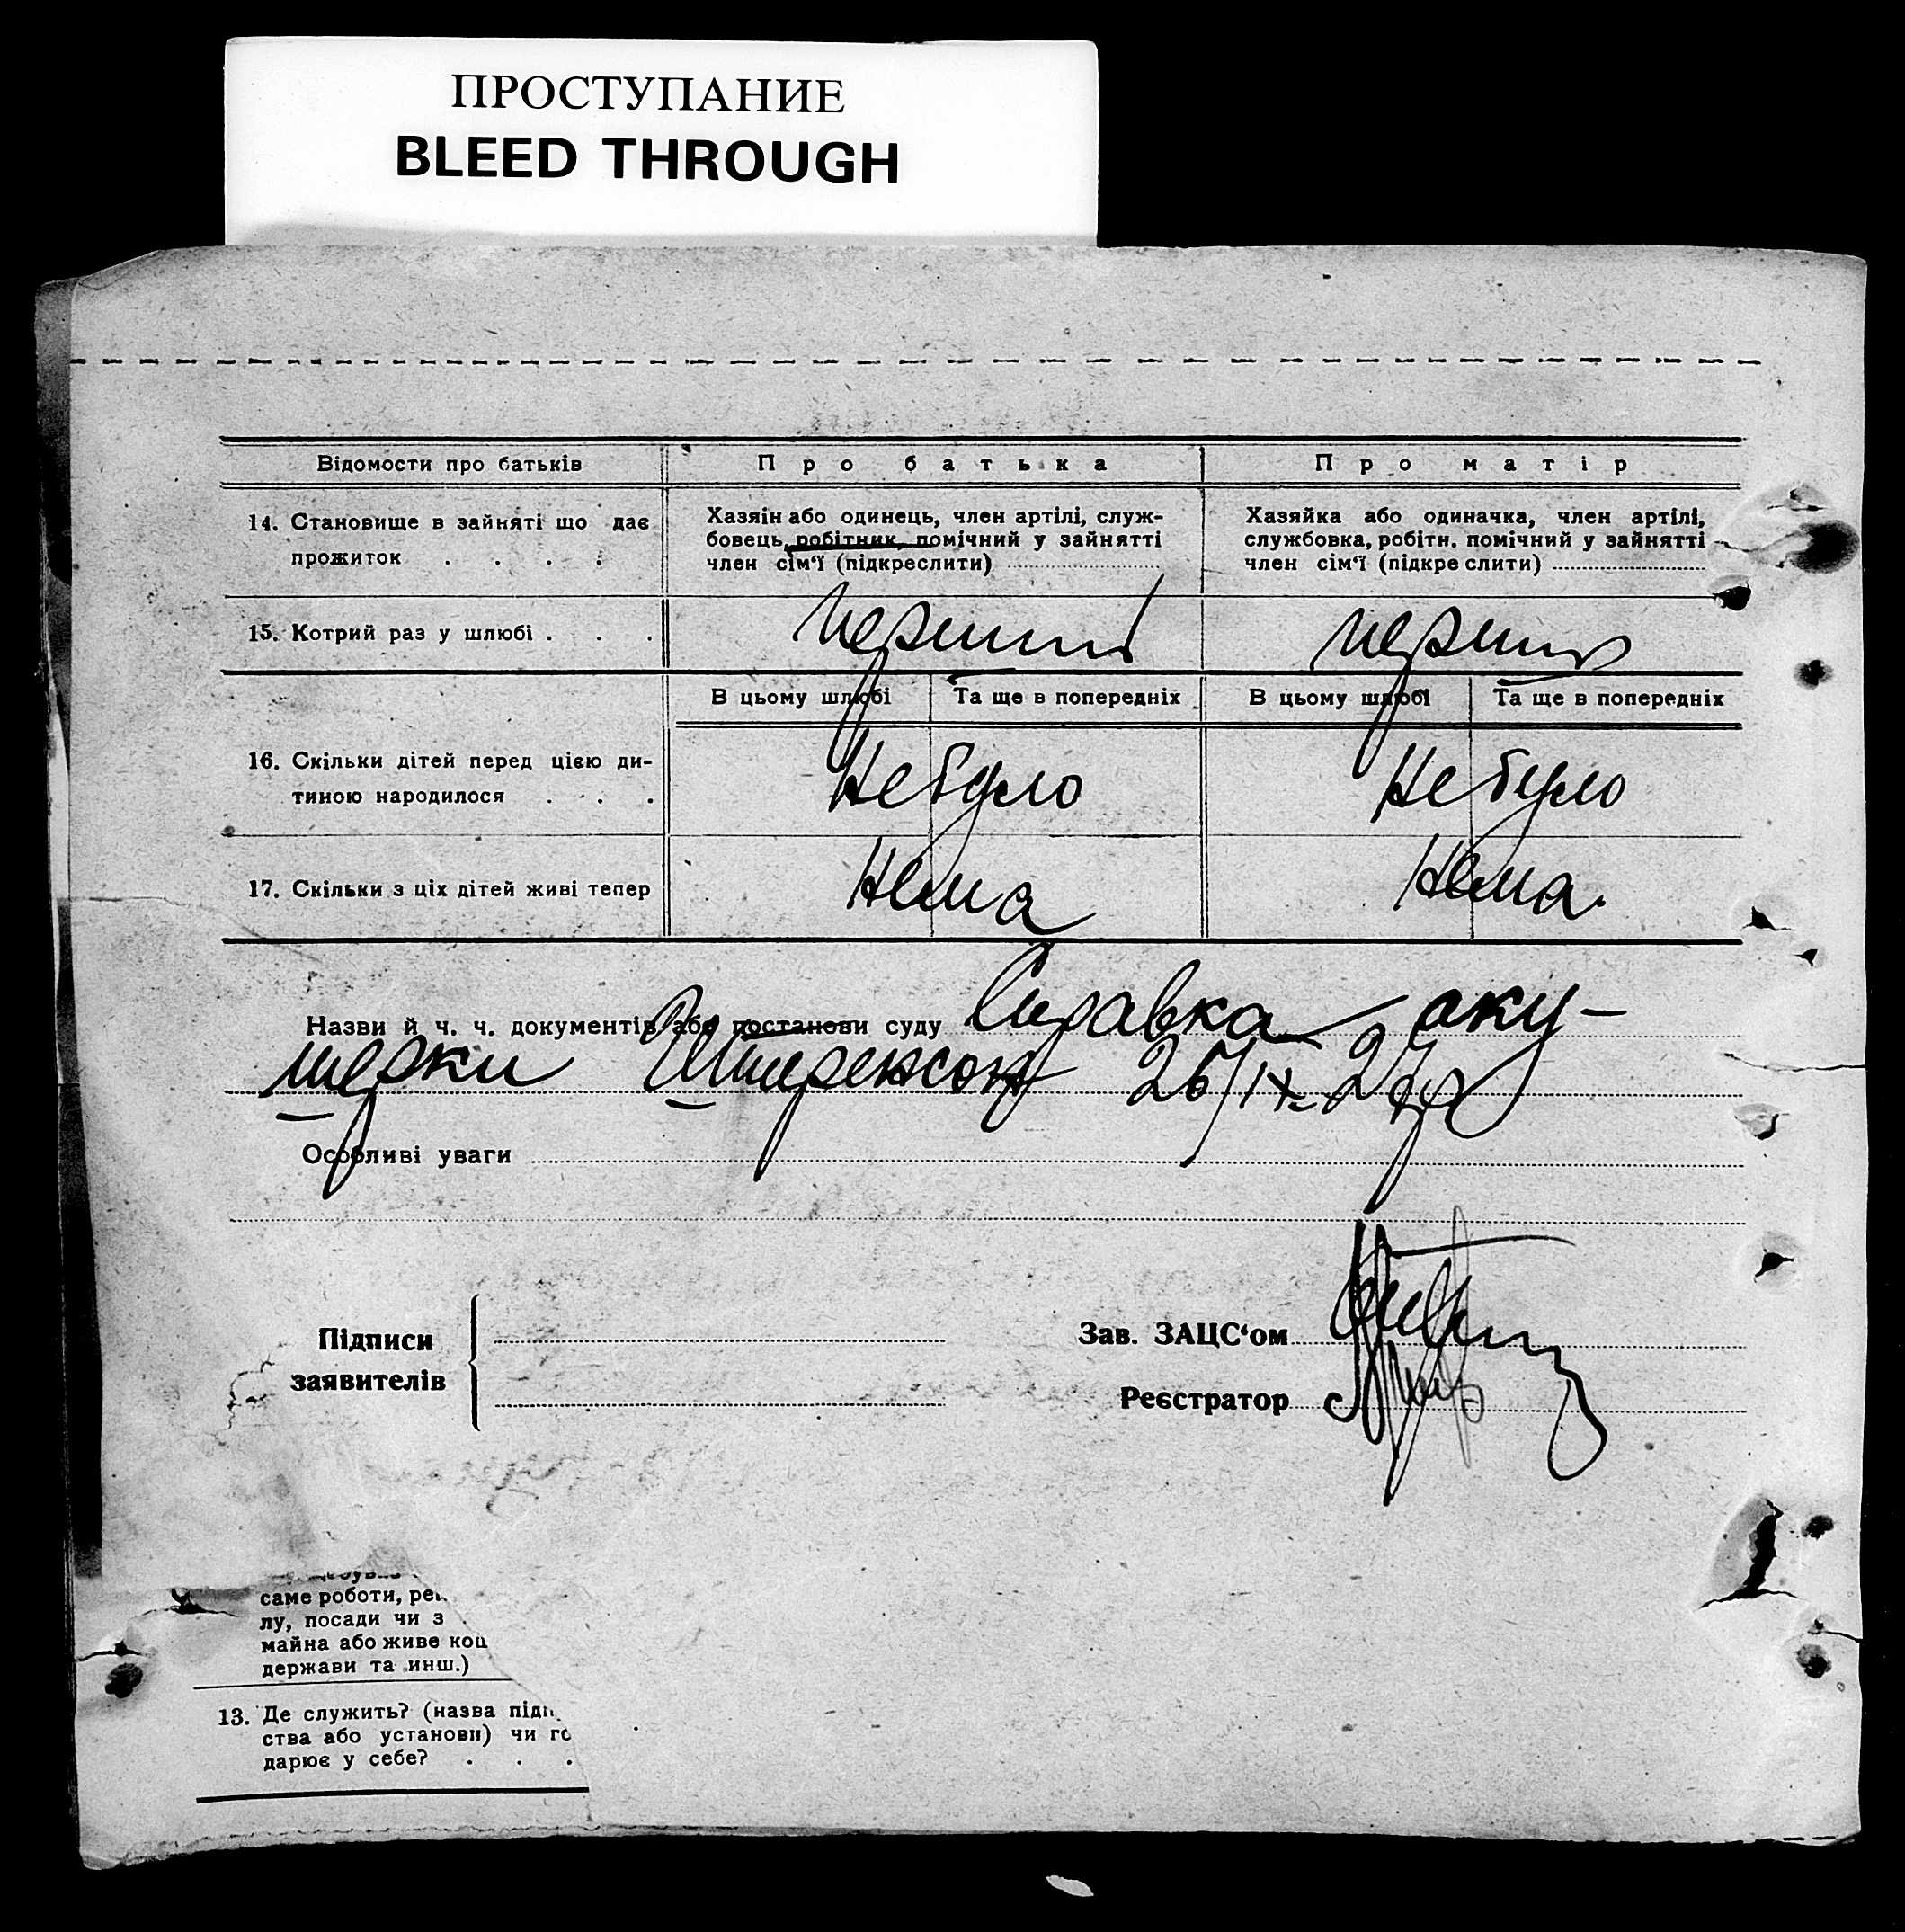 ПРОСТУПАНИЕ
BLEED THROUGH
Відомости про батьків Про батька Про матір
14. Становище в зайняті що дає прожиток . . . .
Хазяін або одинець, член артілі, служ-
бовець, робітник, помічний у зайнятті
член сім‘ї (підкреслити)
Хазяйка або одиначка, член артілі,
службовка, робітн. помічний у зайнятті
член сім‘ї (підкреслити)
15. Котрий раз у шлюбі . . . перший перший
В цьому шлюбі Та ще в попередніх В цьому шлюбі Та ще в попередніх
16. Скільки дітей перед цією ди-
тиною народилося . . . Не було Не було
17. Скільки з ціх дітей живі тепер Нема Нема.
Назви й ч. ч. документів або постанови суду Справка аку-
шерки 26/IX-
Особливі уваги
Підписи
заявителів
Зав. ЗАЦС‘ом
Реєстратор
саме роботи,
лу, посади чи з
майна або живе
держави та инш.)
13. Де служить? (назва
ства або установи) чи
дарює у себе? . . .